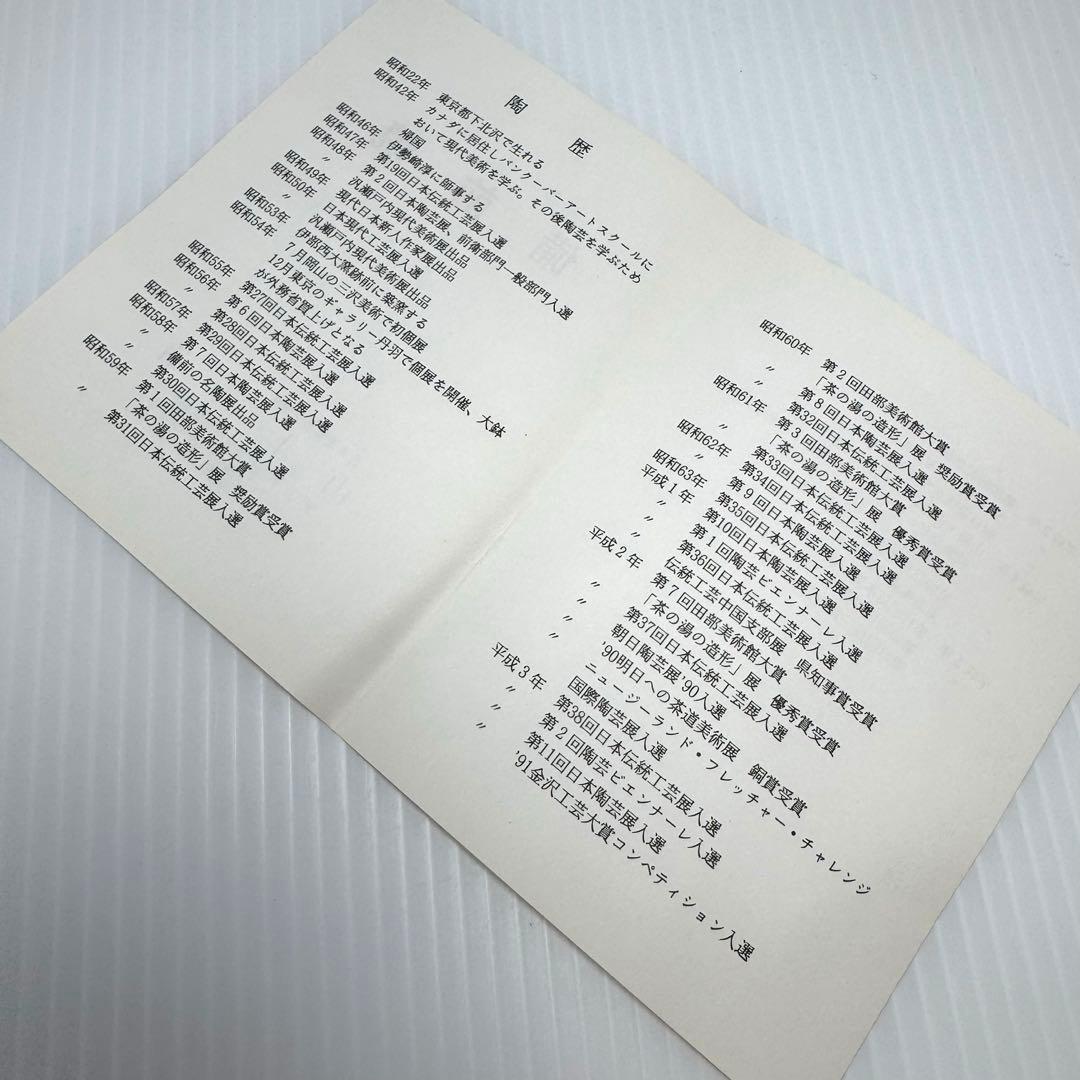 陶歴
昭和22年 東京都下北沢で生れる
昭和42年 カナダに居住しバンクーバーアートスクールに
おいて現代美術を学ぶ。その後陶芸を学ぶため
帰国
昭和46年 伊勢崎淳に師事する
昭和47年 第19回日本伝統工芸展入選
昭和48年 第2回日本陶芸展 前衛部門一般部門入選
〃 汎瀬戸内現代美術展出品
昭和49年 現代日本新人作家展出品
昭和50年 日本現代工芸展入選
〃 汎瀬戸内現代美術展出品
昭和53年 伊部西大窯跡前に築窯する
昭和54年 7月岡山の三沢美術で初個展
12月東京のギャラリー丹羽で個展を開催、大鉢
が外務省買上げとなる
昭和55年 第27回日本伝統工芸展入選
昭和56年 第6回日本陶芸展入選
〃 第28回日本伝統工芸展入選
昭和57年 第29回日本伝統工芸展入選
昭和58年 第7回日本陶芸展入選
〃 備前の名陶展出品
第30回日本伝統工芸展入選
昭和59年 第1回田部美術館大賞
「茶の湯の造形」展 奨励賞受賞
〃 第31回日本伝統工芸展入選
昭和60年 第2回田部美術館大賞
「茶の湯の造形」展 奨励賞受賞
〃 第8回日本陶芸展入選
〃 第32回日本伝統工芸展入選
昭和61年 第3回田部美術館大賞
「茶の湯の造形」展 優秀賞受賞
〃 第33回日本伝統工芸展入選
昭和62年 第34回日本伝統工芸展入選
〃 第9回日本陶芸展入選
昭和63年 第35回日本伝統工芸展入選
平成1年 第10回日本陶芸展入選
〃 第1回陶芸ビエンナーレ入選
〃 第36回日本伝統工芸展入選
平成2年 伝統工芸中国支部展 県知事賞受賞
〃 第7回田部美術館大賞
「茶の湯の造形」展 優秀賞受賞
〃 第37回日本伝統工芸展入選
〃 朝日陶芸展'90入選
〃 '90明日への茶道美術展 銅賞受賞
ニュージーランド・フレッチャー・チャレンジ
国際陶芸展入選
平成3年 第38回日本伝統工芸展入選
〃 第2回陶芸ビエンナーレ入選
〃 第11回日本陶芸展入選
'91金沢工芸大賞コンペティション入選